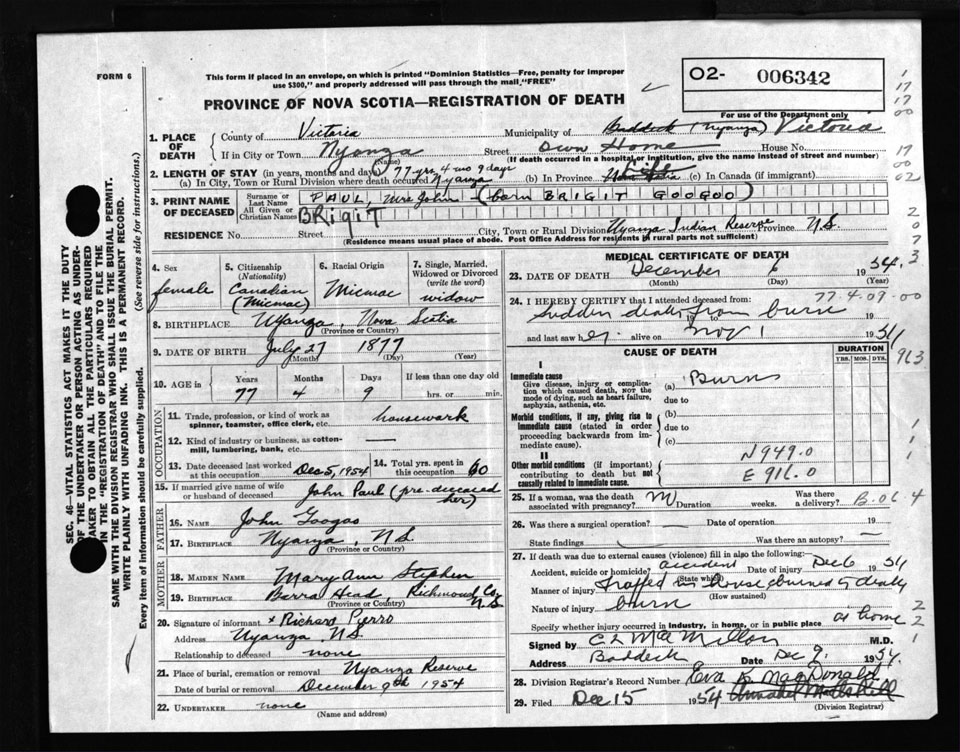 FORM 6
This form if placed in an envelope, on which is printed "Dominion Statistics—Free, penalty for improper
use $300," and properly addressed will pass through the mail "FREE"
O2- 006342
For use of the Department only
PROVINCE OF NOVA SCOTIA—REGISTRATION OF DEATH
1. PLACE OF DEATH
County of Victoria Municipality of Baddeck (Nyanza) Victoria
If in City or Town Nyanza Street own Home House No.
(Name) (If death occurred in a hospital or institution, give the name instead of street and number)
2. LENGTH OF STAY (in years, months and days) 77 yrs 4 mo 9 days
(a) In City, Town or Rural Division where death occurred Nyanza (b) In Province Life (c) In Canada (if immigrant)
3. PRINT NAME OF DECEASED
Surname or Last Name PAUL, Mrs John (born BRIGIT GOOGOO)
All Given or Christian Names BRIGIT
RESIDENCE No. Street City, Town or Rural Division Nyanza Indian Reserve Province N.S.
(Residence means usual place of abode. Post Office Address for residents in rural parts not sufficient)
4. Sex female
5. Citizenship (Nationality) Canadian (Micmac)
6. Racial Origin Micmac
7. Single, Married, Widowed or Divorced (write the word) widow
8. BIRTHPLACE Nyanza, Nova Scotia
(Province or Country)
9. DATE OF BIRTH July 27 1877
(Month) (Day) (Year)
10. AGE in Years Months Days If less than one day old
77 4 9 hrs. or min.
OCCUPATION
11. Trade, profession, or kind of work as spinner, teamster, office clerk, etc. housework
12. Kind of industry or business, as cotton-mill, lumbering, bank, etc. —
13. Date deceased last worked at this occupation Dec 5, 1954
14. Total yrs. spent in this occupation 60
15. If married give name of wife or husband of deceased John Paul (pre-deceased her)
FATHER
16. NAME John Googoo
17. BIRTHPLACE Nyanza, N.S.
(Province or Country)
MOTHER
18. MAIDEN NAME Mary Ann Stephen
19. BIRTHPLACE Barra Head, Richmond Co. N.S.
(Province or Country)
20. Signature of informant x Richard Pierro
Address Nyanza, N.S.
Relationship to deceased none
21. Place of burial, cremation or removal Nyanza Reserve
Date of burial or removal December 9th 1954
22. UNDERTAKER none
(Name and address)
MEDICAL CERTIFICATE OF DEATH
23. DATE OF DEATH December 6 1954
(Month) (Day) (Year)
77-4-09-00
24. I HEREBY CERTIFY that I attended deceased from:
Sudden death from burn 19
and last saw her alive on Nov 1 1954
CAUSE OF DEATH
DURATION
YRS. MOS. DYS.
963
I
Immediate cause
Give disease, injury or complication which caused death, NOT the mode of dying, such as heart failure, asphyxia, asthenia, etc.
(a) Burns
Morbid conditions, if any, giving rise to immediate cause (stated in order proceeding backwards from immediate cause).
(b)
(c)
II
Other morbid conditions (if important) contributing to death but not causally related to immediate cause.
N949.0
E 916.0
25. If a woman, was the death associated with pregnancy? No Duration weeks. Was there a delivery?
B.06 4
26. Was there a surgical operation? — Date of operation 19
State findings Was there an autopsy? —
27. If death was due to external causes (violence) fill in also the following:
Accident, suicide or homicide? accident Date of injury Dec 6 1954
(State which)
Manner of injury Trapped in house burned to death
(How sustained)
Nature of injury burn
Specify whether injury occurred in industry, in home, or in public place at home
Signed by C L MacMillan M.D.
Address Baddeck Date Dec 9, 1954.
28. Division Registrar's Record Number
Eva K MacDonald
29. Filed Dec 15 1954
(Division Registrar)
SEC. 46—VITAL STATISTICS ACT MAKES IT THE DUTY
OF THE UNDERTAKER OR PERSON ACTING AS UNDERTAKER TO OBTAIN ALL THE PARTICULARS REQUIRED
IN THE "REGISTRATION OF DEATH" AND TO FILE THE
SAME WITH THE DIVISION REGISTRAR WHO SHALL ISSUE THE BURIAL PERMIT.
WRITE PLAINLY WITH UNFADING INK. THIS IS A PERMANENT RECORD.
Every item of information should be carefully supplied. (See reverse side for instructions.)